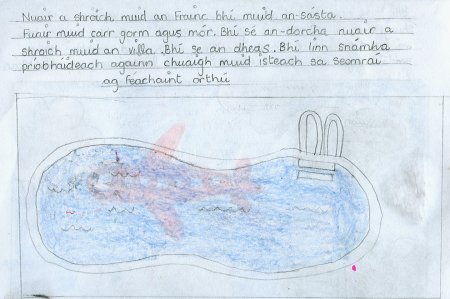 Nuair a shroich muid an Frainc bhí muid an-sásta.
Fuair muid carr gorm agus mór. Bhí sé an-dorcha nuair a
shroich muid an villa. Bhí se an dheas. Bhí linn snámha
príobháideach againn chuaigh muid isteach sa seomraí
ag féachaint orthú